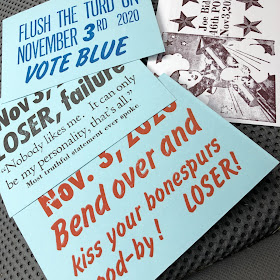 FLUSH THE TURD ON
NOVEMBER 3RD 2020
VOTE BLUE
Nov 3,
OSER, failure
"Nobody likes me. It can only
be my personality, that's all."
Most truthful statement ever spoke
Nov. 3, 2020
Bend over and
kiss your bonespurs
ood-by! LOSER!
Joe Bid
46th PO
Nov. 3, 20